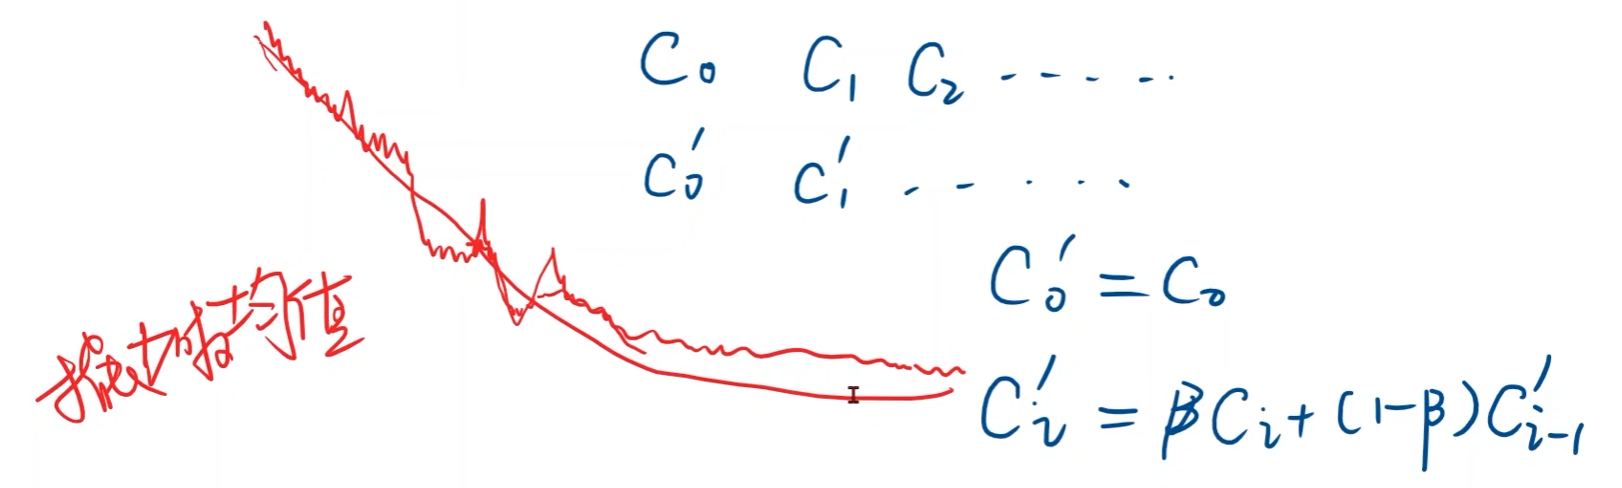 C₀ C₁ C₂ ······
C₀′ C₁′ ······
C₀′ = C₀
Cᵢ′ = βCᵢ + (1-β)C′ᵢ₋₁
均值